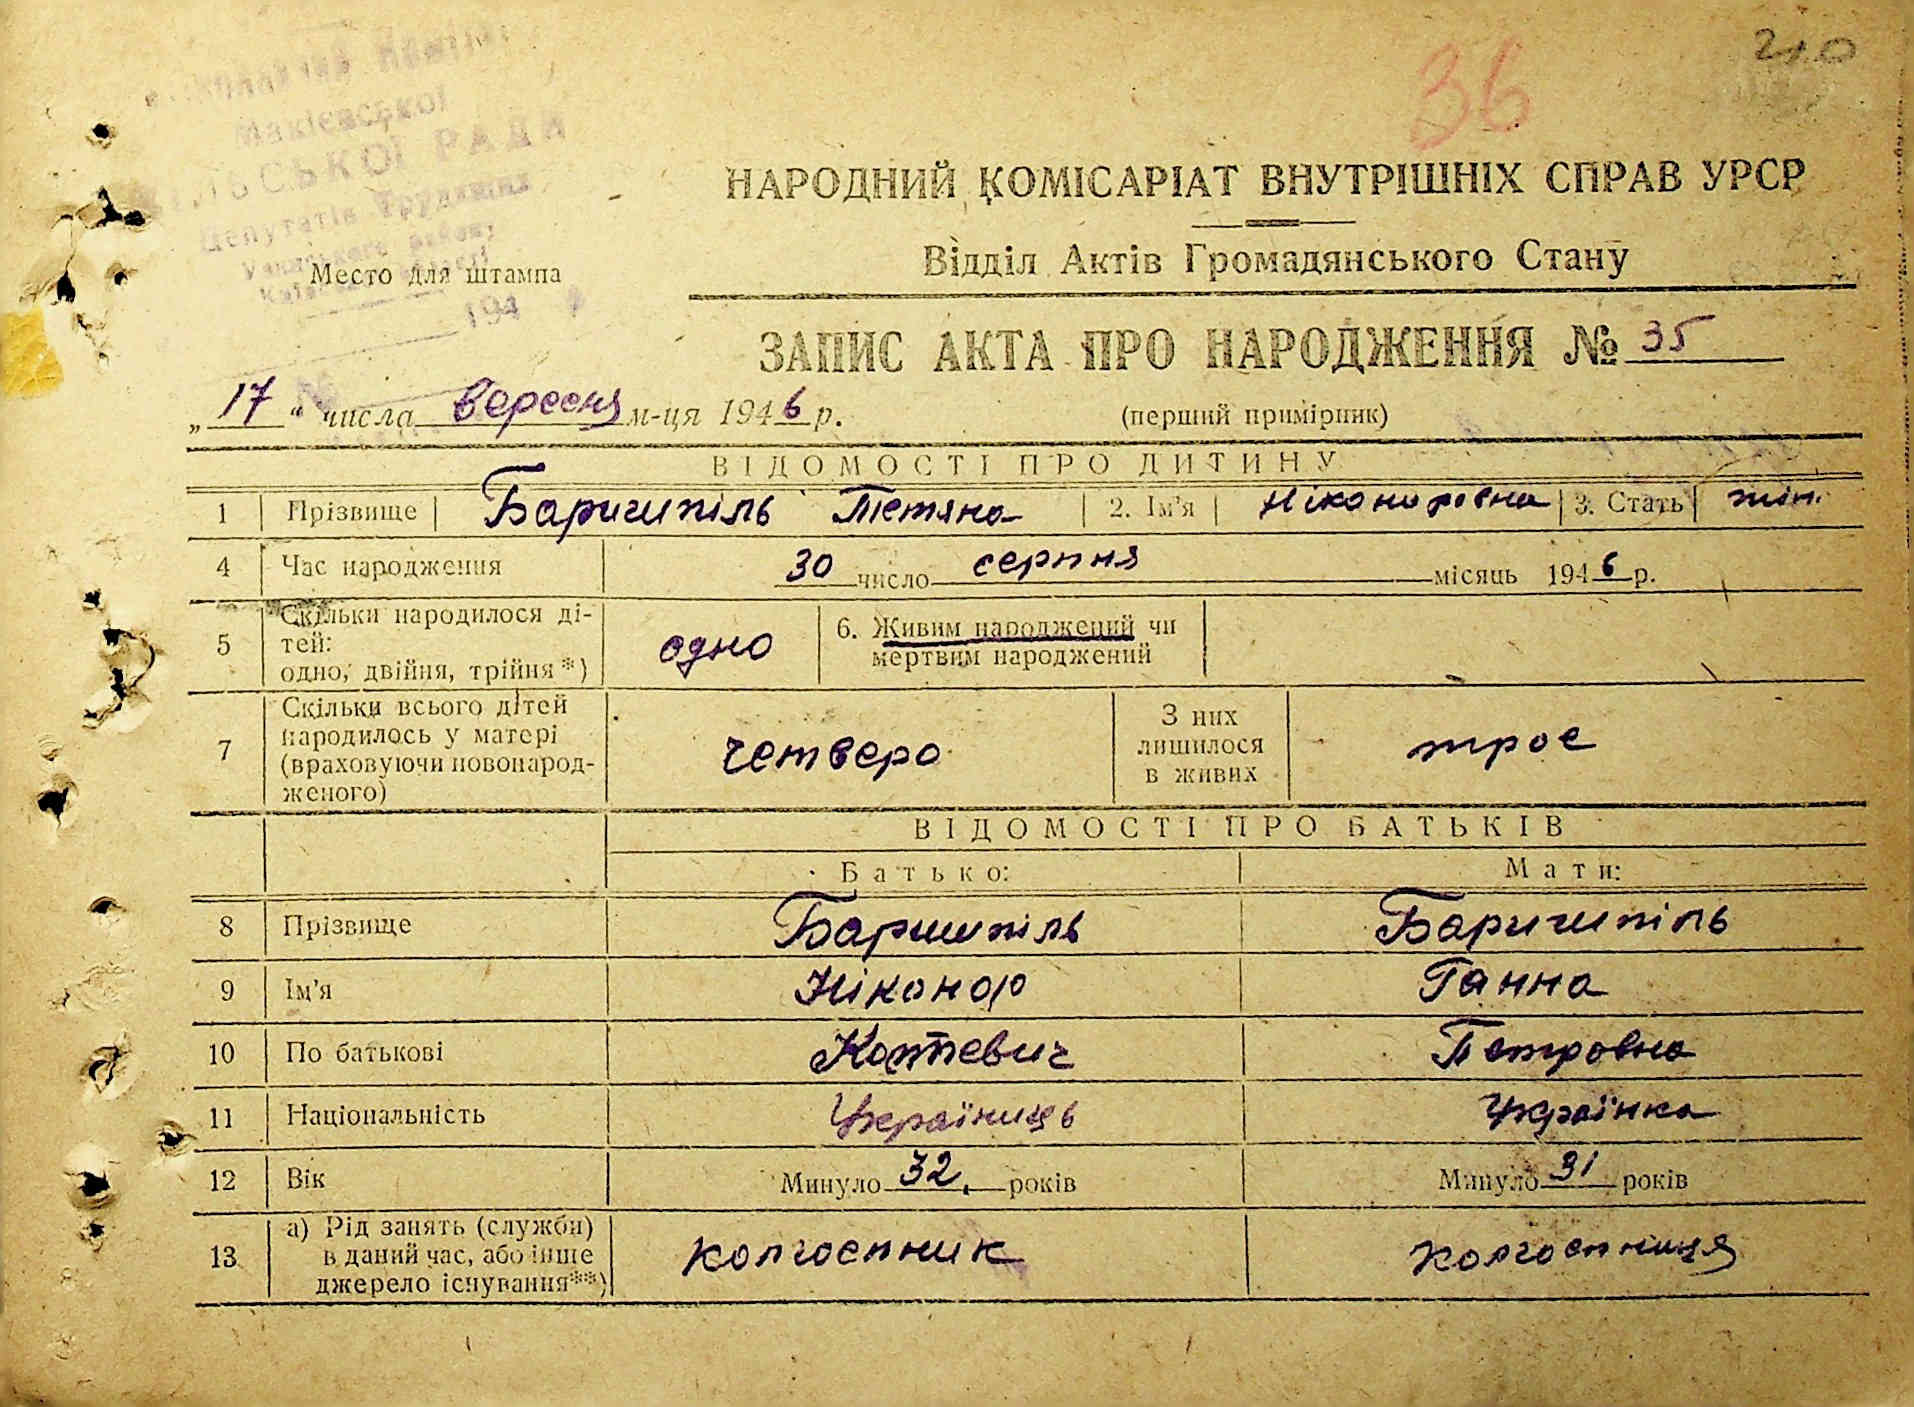 210
36
Макієвської
СЬКОЇ РАДИ
Депутатів Трудящих
Место для штампа
194
НАРОДНИЙ КОМІСАРІАТ ВНУТРІШНІХ СПРАВ УРСР
Відділ Актів Громадянського Стану
ЗАПИС АКТА ПРО НАРОДЖЕННЯ № 35
„17“ числа вересня м-ця 1946 р. (перший примірник)
ВІДОМОСТІ ПРО ДИТИНУ
1 Прізвище Баришпіль Тетяна 2. Ім'я Ніконоровна 3. Стать жін.
4 Час народження 30 число серпня місяць 1946 р.
5 Скільки народилося ді-
тей:
одно, двійня, трійня *) одно 6. Живим народжений чи
мертвим народжений
7 Скільки всього дітей
народилось у матері
(враховуючи новонарод-
женого) четверо З них
лишилося
в живих троє
ВІДОМОСТІ ПРО БАТЬКІВ
Батько: Мати:
8 Прізвище Баришпіль Баришпіль
9 Ім'я Ніконор Ганна
10 По батькові Петровна
11 Національність Українець Українка
12 Вік Минуло 32 років Минуло 31 років
13 а) Рід занять (служби)
в даний час, або інше
джерело існування**) колгоспник колгоспниця